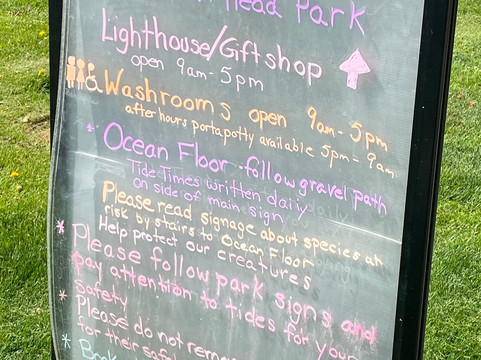 Head Park
Lighthouse/Giftshop
open 9am-5pm
Washrooms open 9am-5pm
after hours portapotty available 5pm-9am
* Ocean Floor - follow gravel path
Tide Times written daily
on side of main sign
Please read signage about species at
risk by stairs to Ocean Floor
Help protect our creatures
* Please follow park signs and
pay attention to tides for your
safety
* Please do not
for their